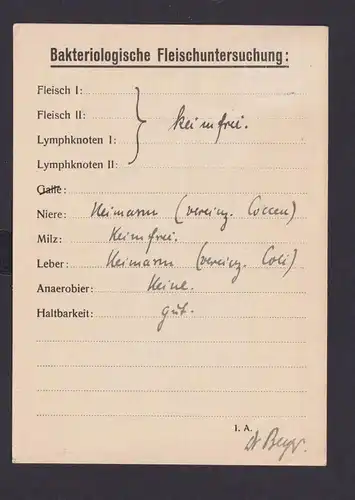 Bakteriologische Fleischuntersuchung:
Fleisch I:
Fleisch II:
keimfrei.
Lymphknoten I:
Lymphknoten II:
Galle:
Niere: Keimarm (vereinz. Coccen)
Milz: Keimfrei.
Leber: Keimarm (vereinz. Coli)
Anaerobier: Keine.
Haltbarkeit: gut.
I. A.